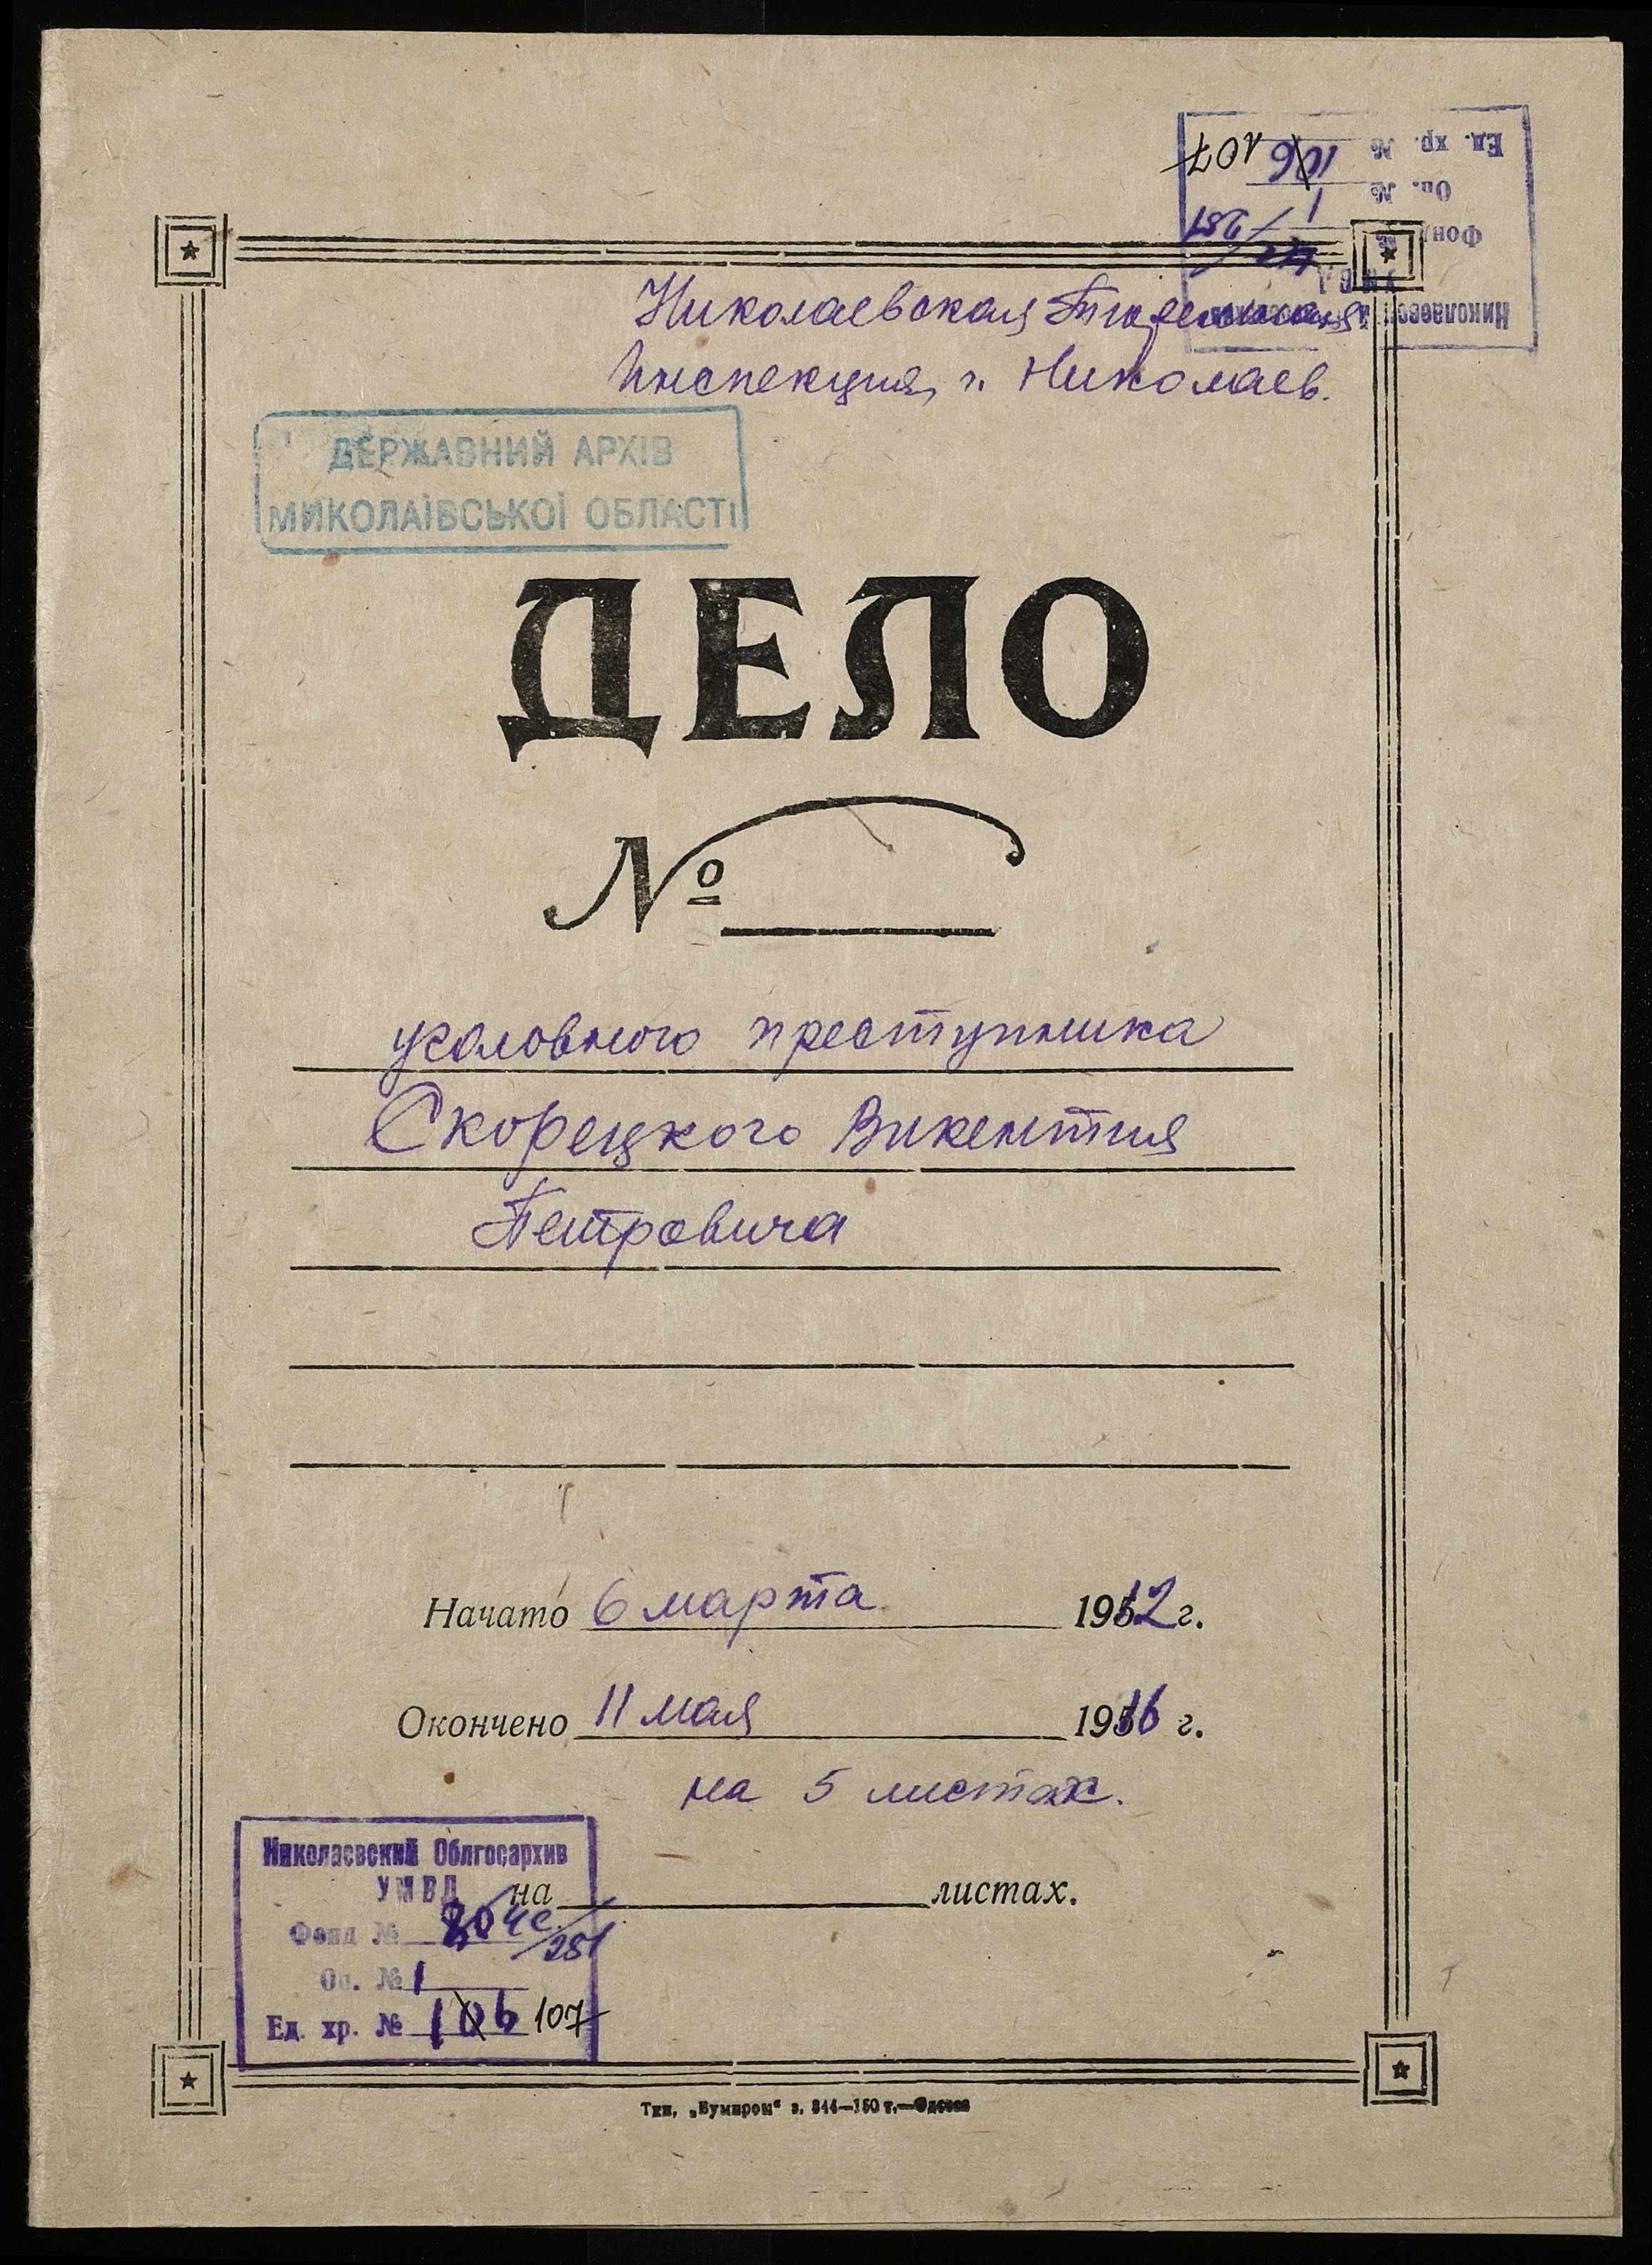 Ед. хр. № 106 107
Оп. № 1
Фонд № 281
УМВД
Николаевская Тюремная
Инспекция, г. Николаев.
ДЕРЖАВНИЙ АРХІВ
МИКОЛАЇВСЬКОЇ ОБЛАСТІ
ДЕЛО
№
уголовного преступника
Скорецкого Викентия
Петровича
Начато 6 марта 1912 г.
Окончено 11 мая 1916 г.
на 5 листах.
на листах.
Николаевский Облгосархив
УМВД
Фонд № 281
Оп. № 1
Ед. хр. № 106 107
Тип. з. 344—150 т.—Одесса